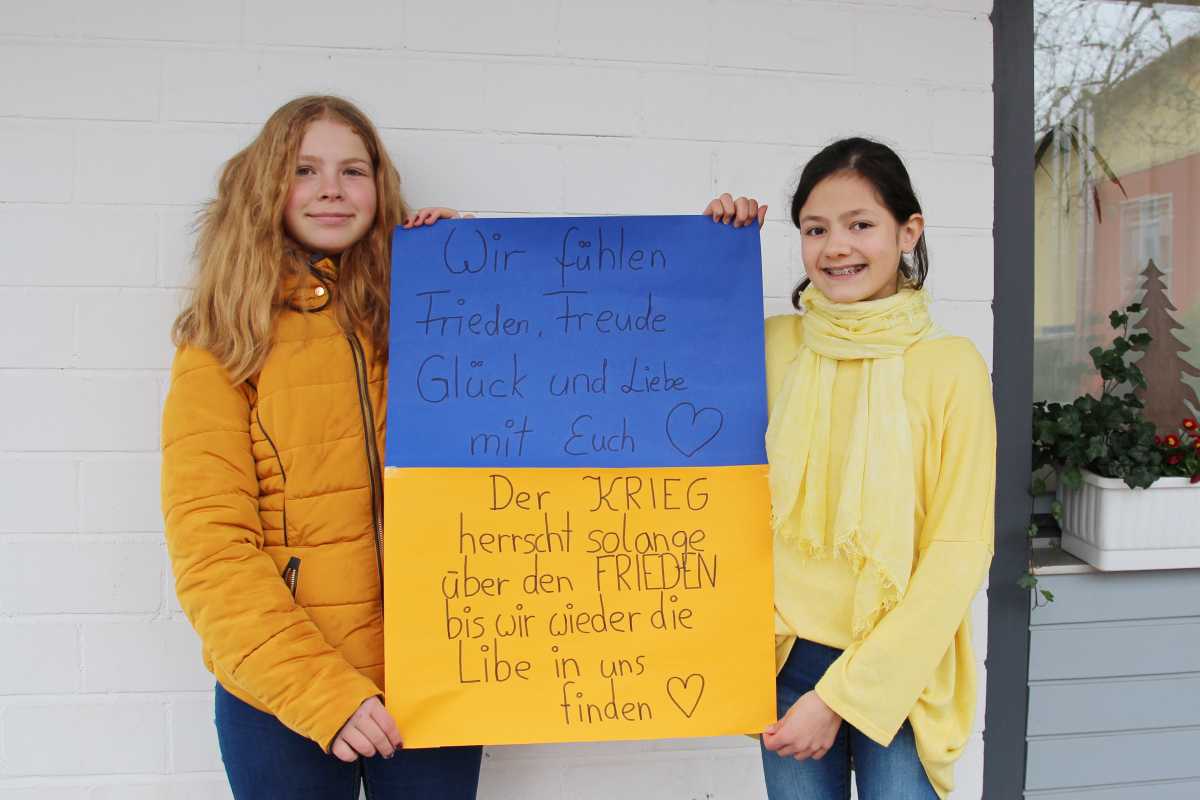 Wir fühlen
Frieden, Freude
Glück und Liebe
mit Euch
Der KRIEG
herrscht solange
über den FRIEDEN
bis wir wieder die
Libe in uns
finden